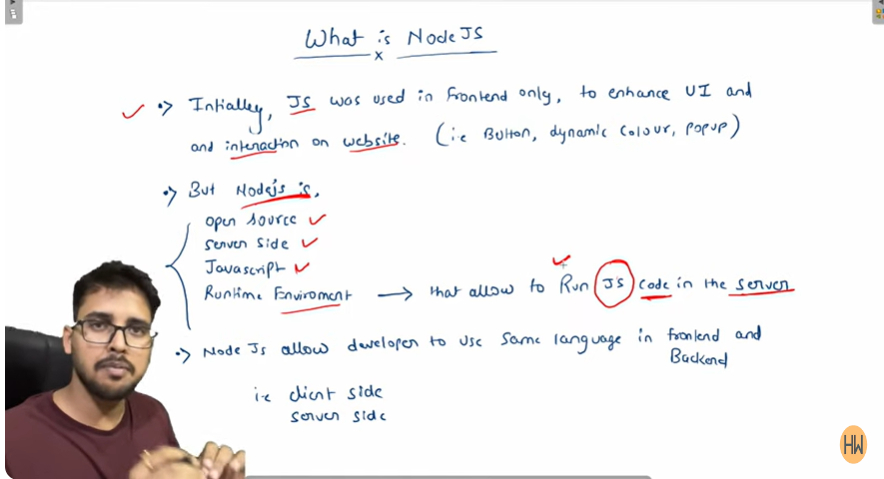 What is NodeJS
x
•> Intialley, JS was used in Frontend only, to enhance UI and
and interaction on website. (i.e Button, dynamic Colour, Popup)
•> But Nodejs is,
open source
server side
Javascript
Runtime Enviroment → that allow to Run JS code in the server
•> Node Js allow developer to use same language in frontend and
Backend
i.e client side
server side
HW